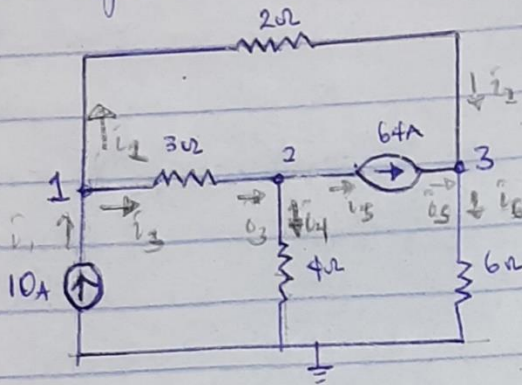 2Ω
i₂
i₂
3Ω
2
64A
3
1
i₁
i₃
i₃
i₄
i₅
i₅
i₆
10A
4Ω
6Ω